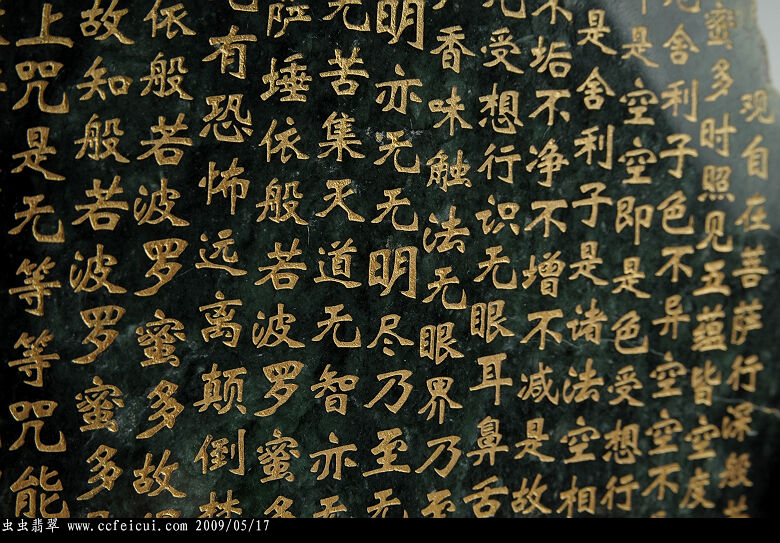 观自在菩萨行深般若
蜜多时照见五蕴皆空度
厄舍利子色不异空空不
是空空即是色受想行
是舍利子是诸法空相
不垢不净不增不减是故
无受想行识无眼耳鼻舌
香味触法无眼界乃至
明亦无无明尽乃至无
无苦集灭道无智亦无
萨埵依般若波罗蜜多
有恐怖远离颠倒梦
依般若波罗蜜多故
故知般若波罗蜜多
上咒是无等等咒能
虫虫翡翠 www.ccfeicui.com 2009/05/17